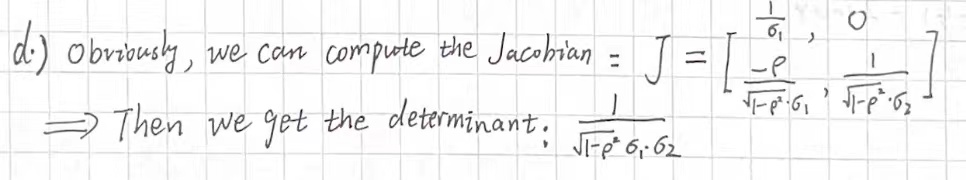 d.) Obviously, we can compute the Jacobian = J = [ 1/σ₁ , 0
-ρ/(√(1-ρ²)·σ₁) , 1/(√(1-ρ²)·σ₂) ]
⟹ Then we get the determinant: 1/(√(1-ρ²) σ₁·σ₂)